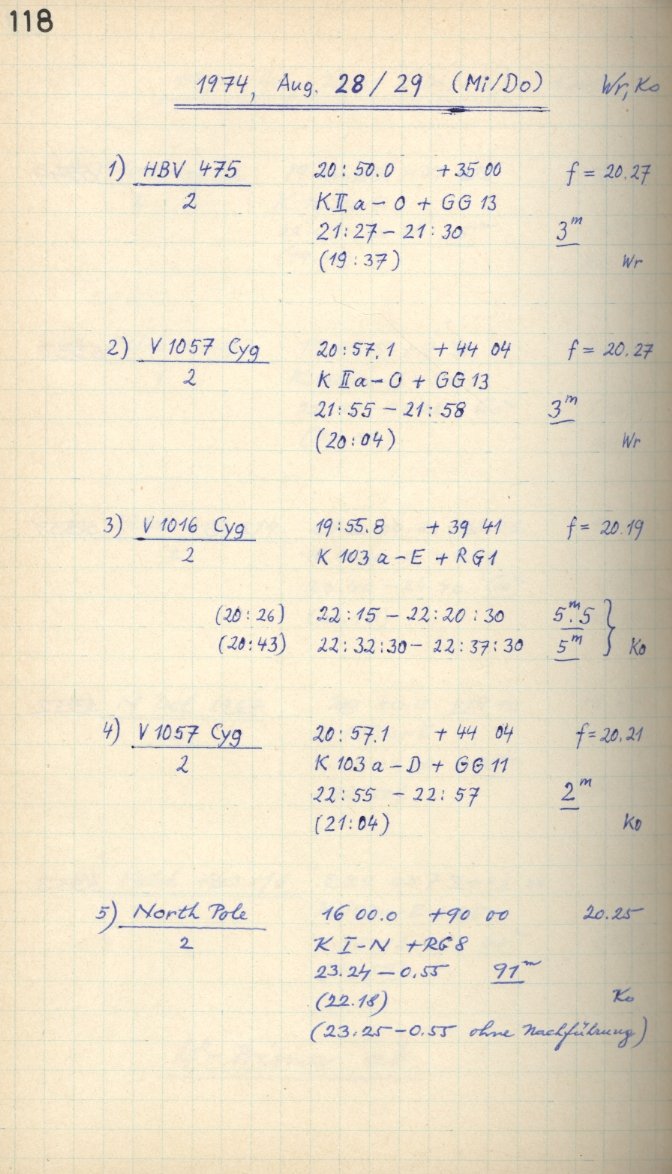 118
1974, Aug. 28/29 (Mi/Do) Wr, Ko
1) HBV 475 20:50.0 +35 00 f = 20.27
2 K II a-O + GG 13
21:27 - 21:30 3^m
(19:37) Wr
2) V 1057 Cyg 20:57.1 +44 04 f = 20.27
2 K II a-O + GG 13
21:55 - 21:58 3^m
(20:04) Wr
3) V 1016 Cyg 19:55.8 +39 41 f = 20.19
2 K 103 a-E + RG 1
(20:26) 22:15 - 22:20:30 5^m.5
(20:43) 22:32:30 - 22:37:30 5^m } Ko
4) V 1057 Cyg 20:57.1 +44 04 f = 20.21
2 K 103 a-D + GG 11
22:55 - 22:57 2^m
(21:04) Ko
5) North Pole 16 00.0 +90 00 20.25
2 K I-N + RG 8
23.24 - 0.55 91^m
(22.18) Ko
(23:25 - 0.55 ohne Nachführung)